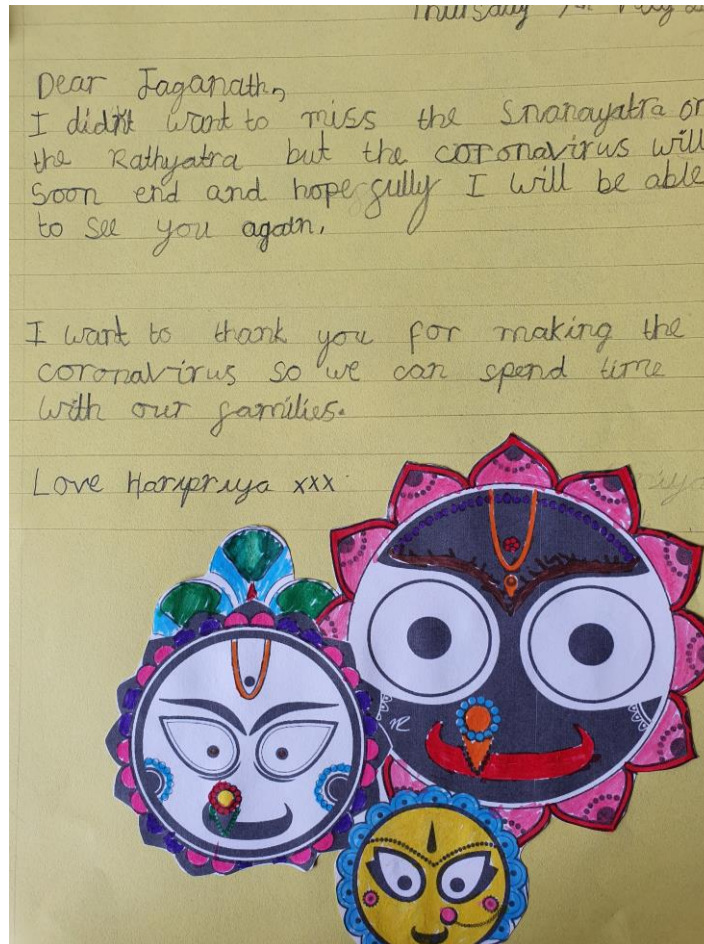 Thursday
Dear Jaganath,
I didn't want to miss the Snanayatra or
the Rathyatra but the coronavirus will
soon end and hopefully I will be able
to see you again.
I want to thank you for making the
coronavirus so we can spend time
with our families.
Love Haripriya xxx